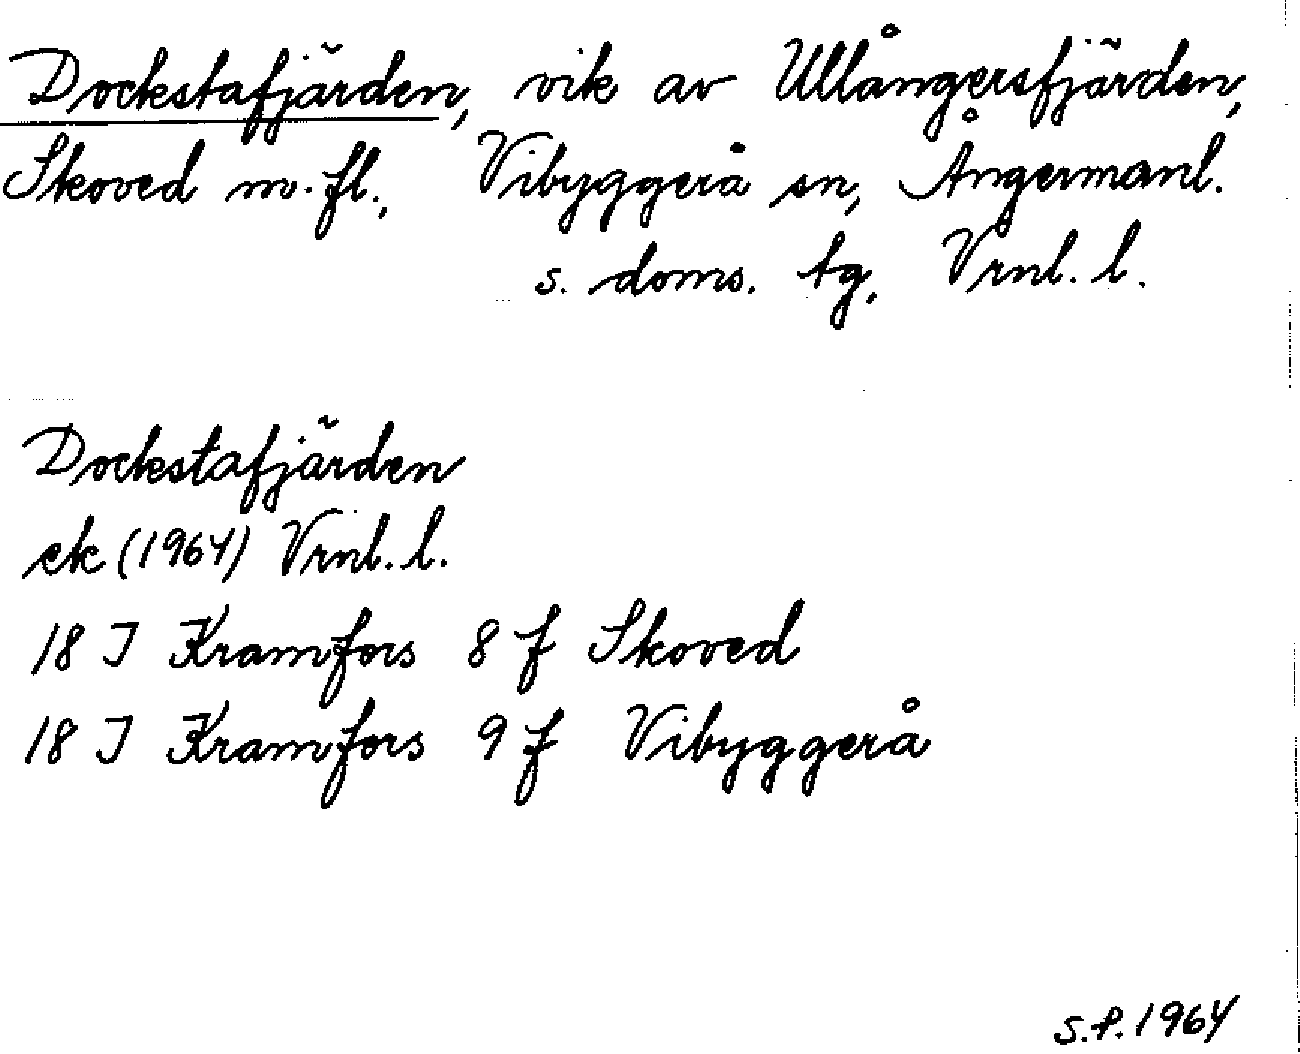 Dockstafjärden, vik av Ullångersfjärden,
Skoved m.fl., Vibyggerå sn, Ångermanl.
s. doms. tg, Vrnl. l.
Dockstafjärden
ek (1964) Vrnl. l.
18 I Kramfors 8 f Skoved
18 I Kramfors 9 f Vibyggerå
S.P. 1964